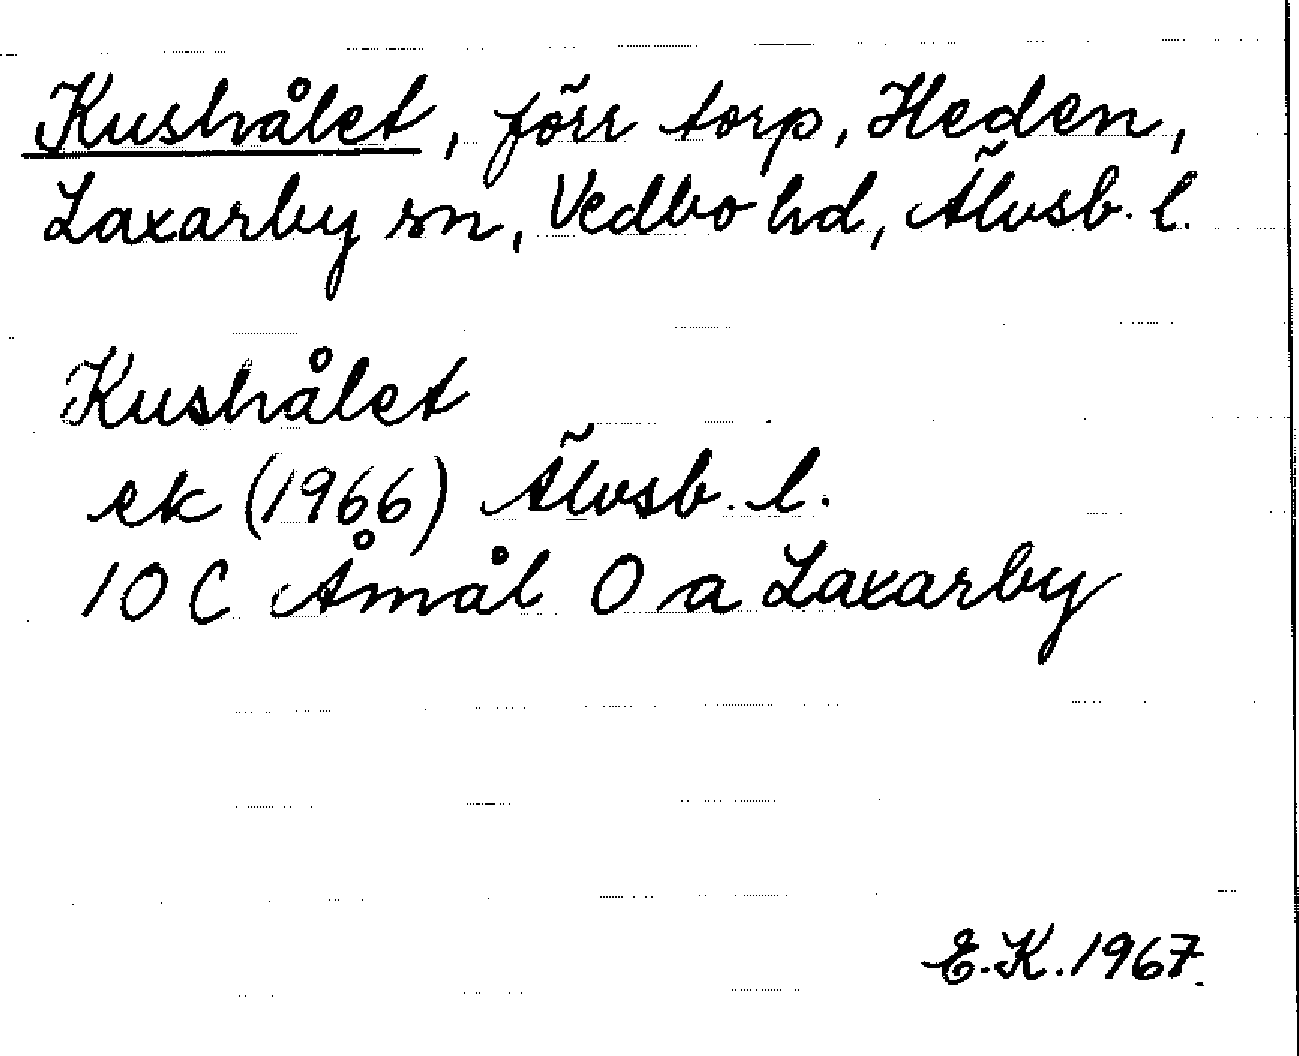 Kushålet, förr torp, Heden,
Laxarby sn, Vedbo hd, Älvsb. l.
Kushålet
ek (1966) Älvsb. l.
10 C Åmål O a Laxarby
E.K. 1967.